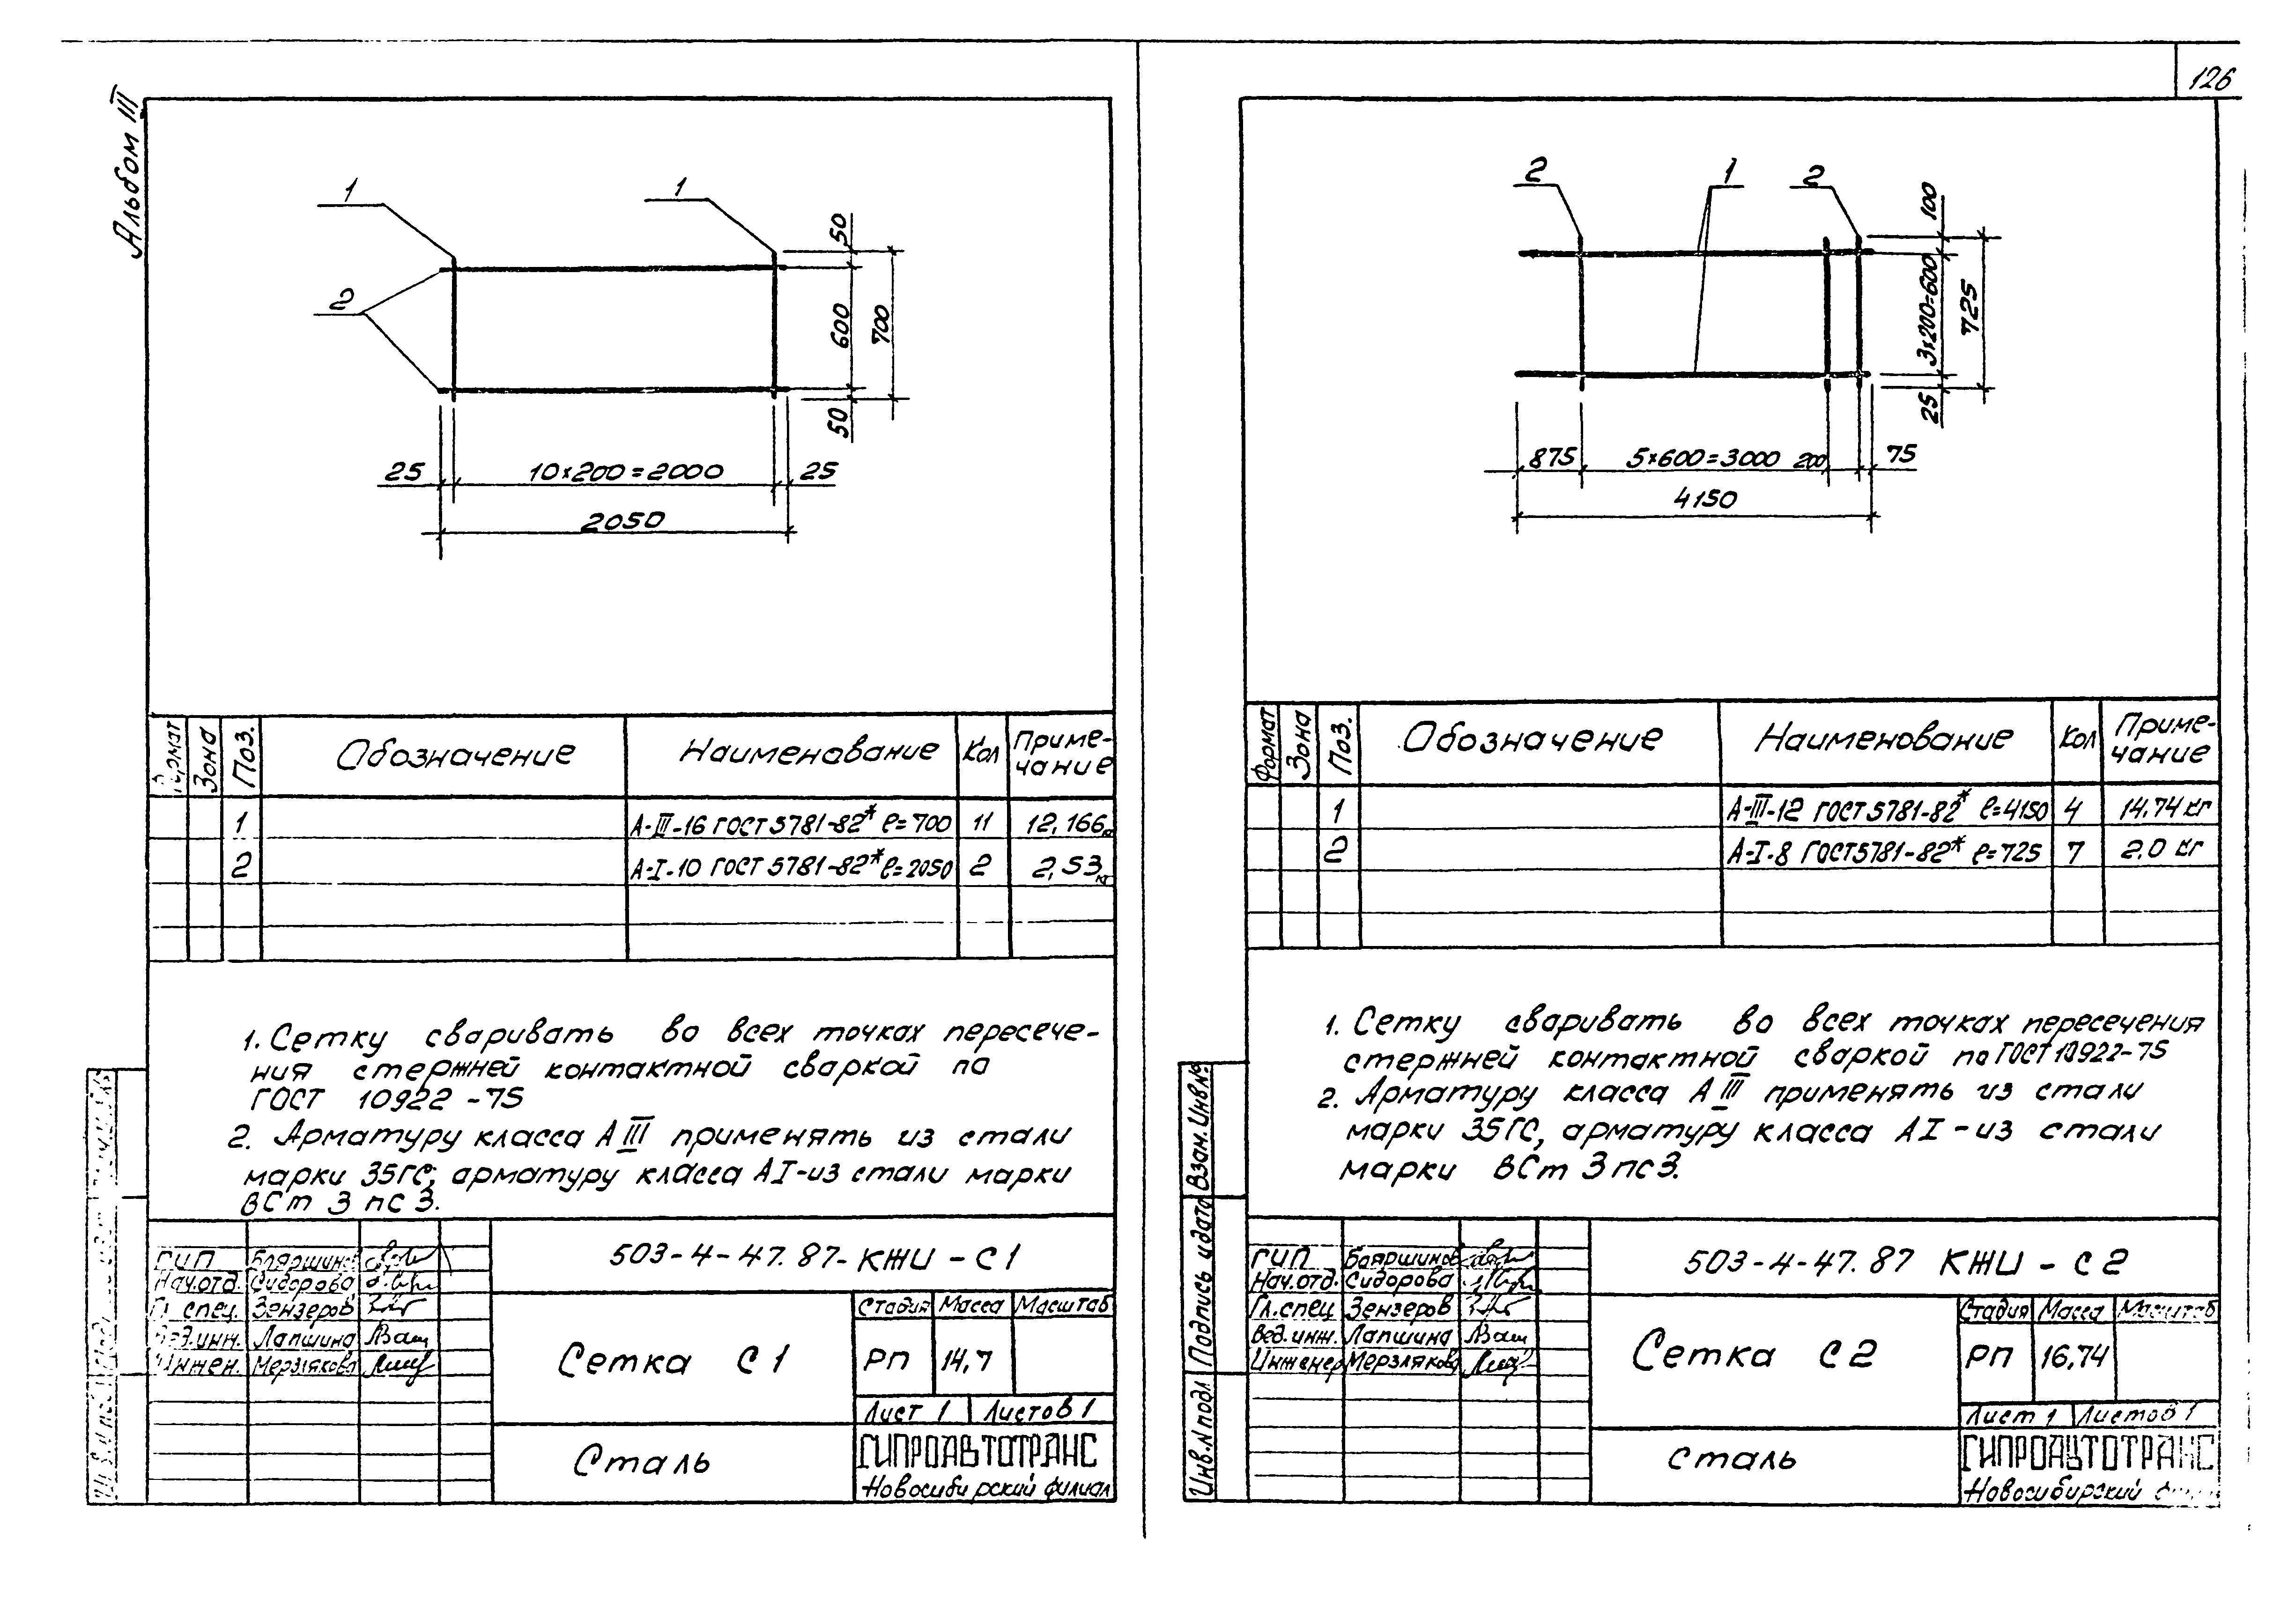 126
Альбом III
1
1
2
50
600
700
50
25
10×200=2000
25
2050
Формат
Зона
Поз.
Обозначение
Наименование
Кол
Приме-
чание
1
А-III-16 ГОСТ 5781-82* ℓ=700
11
12,166кг
2
А-I-10 ГОСТ 5781-82* ℓ=2050
2
2,53кг
1. Сетку сваривать во всех точках пересече-
ния стержней контактной сваркой по
ГОСТ 10922-75
2. Арматуру класса А III применять из стали
марки 35ГС, арматуру класса АI-из стали марки
ВСт 3 пс 3.
503-4-47.87-КЖИ-С1
ГИП Бояршинов
Нач.отд. Сидорова
Гл. спец. Зензеров
Вед.инж. Лапшина
Инжен. Мерзлякова
Сетка С1
Стадия Масса Масштаб
РП 14,7
Лист 1 Листов 1
Сталь
ГИПРОАВТОТРАНС
Новосибирский филиал
2
1
2
100
3×200=600
725
25
875
5×600=3000
200
75
4150
Формат
Зона
Поз.
Обозначение
Наименование
Кол
Приме-
чание
1
А-III-12 ГОСТ 5781-82* ℓ=4150
4
14,74 кг
2
А-I-8 ГОСТ 5781-82* ℓ=725
7
2.0 кг
1. Сетку сваривать во всех точках пересечения
стержней контактной сваркой по ГОСТ 10922-75
2. Арматуру класса А III применять из стали
марки 35ГС, арматуру класса АI-из стали
марки ВСт 3 пс 3.
Взам.Инв.№
Подпись и дата
Инв.N подл
503-4-47.87 КЖИ-С2
ГИП Бояршинов
Нач.отд. Сидорова
Гл.спец Зензеров
Вед.инж. Лапшина
Инженер Мерзлякова
Сетка С2
Стадия Масса Масштаб
РП 16,74
Лист 1 Листов 1
сталь
ГИПРОАВТОТРАНС
Новосибирский